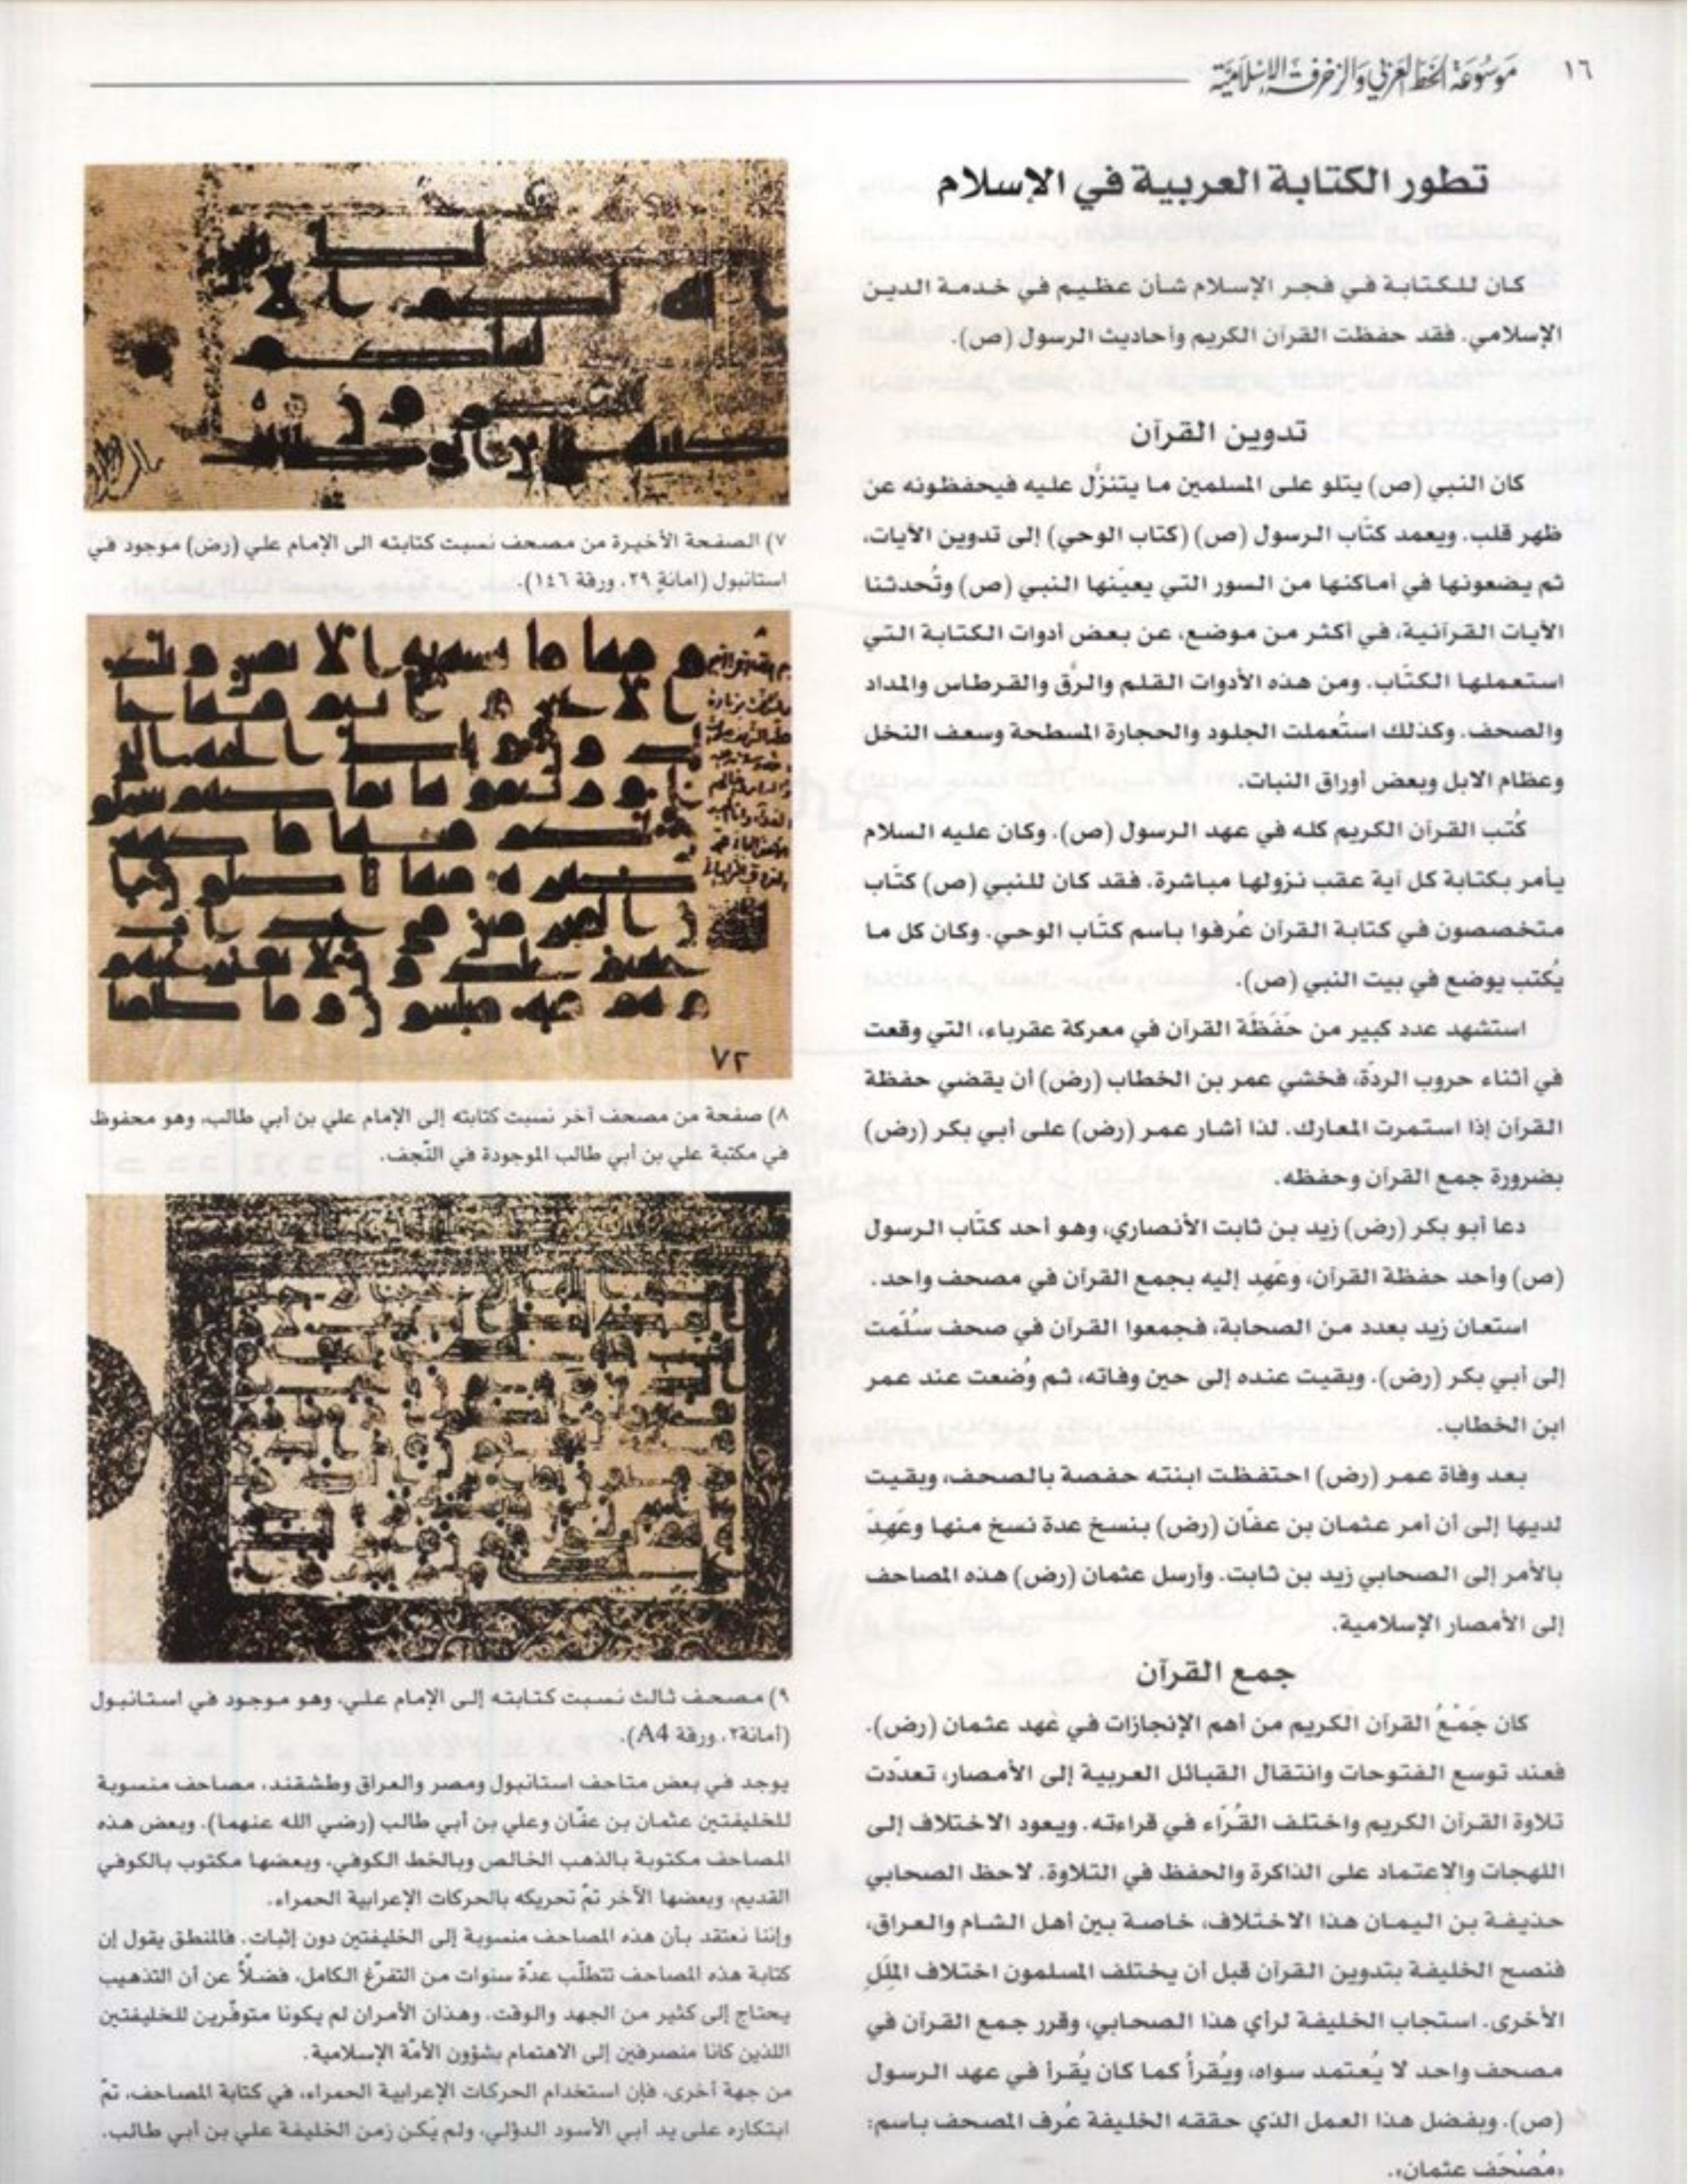 ١٦
موسوعة الخط العربي والزخرفة الإسلامية
تطور الكتابة العربية في الإسلام
كان للكتابة في فجر الإسلام شأن عظيم في خدمة الدين
الإسلامي. فقد حفظت القرآن الكريم وأحاديث الرسول (ص).
تدوين القرآن
كان النبي (ص) يتلو على المسلمين ما يتنزّل عليه فيحفظونه عن
ظهر قلب. ويعمد كتّاب الرسول (ص) (كتاب الوحي) إلى تدوين الآيات،
ثم يضعونها في أماكنها من السور التي يعيّنها النبي (ص) وتُحدثنا
الآيات القرآنية، في أكثر من موضع، عن بعض أدوات الكتابة التي
استعملها الكتّاب. ومن هذه الأدوات القلم والرَّق والقرطاس والمداد
والصحف. وكذلك استُعملت الجلود والحجارة المسطحة وسعف النخل
وعظام الابل وبعض أوراق النبات.
كُتب القرآن الكريم كله في عهد الرسول (ص). وكان عليه السلام
يأمر بكتابة كل آية عقب نزولها مباشرة. فقد كان للنبي (ص) كتّاب
متخصصون في كتابة القرآن عُرفوا باسم كتّاب الوحي. وكان كل ما
يُكتب يوضع في بيت النبي (ص).
استشهد عدد كبير من حَفَظَة القرآن في معركة عقرباء، التي وقعت
في أثناء حروب الردّة، فخشي عمر بن الخطاب (رض) أن يقضي حفظة
القرآن إذا استمرت المعارك. لذا أشار عمر (رض) على أبي بكر (رض)
بضرورة جمع القرآن وحفظه.
دعا أبو بكر (رض) زيد بن ثابت الأنصاري، وهو أحد كتّاب الرسول
(ص) وأحد حفظة القرآن، وعَهِد إليه بجمع القرآن في مصحف واحد.
استعان زيد بعدد من الصحابة، فجمعوا القرآن في صحف سُلّمت
إلى أبي بكر (رض). وبقيت عنده إلى حين وفاته، ثم وُضعت عند عمر
ابن الخطاب.
بعد وفاة عمر (رض) احتفظت ابنته حفصة بالصحف، وبقيت
لديها إلى أن أمر عثمان بن عفّان (رض) بنسخ عدة نسخ منها وعَهِدَ
بالأمر إلى الصحابي زيد بن ثابت. وأرسل عثمان (رض) هذه المصاحف
إلى الأمصار الإسلامية.
جمع القرآن
كان جَمْعُ القرآن الكريم من أهم الإنجازات في عَهد عثمان (رض).
فعند توسع الفتوحات وانتقال القبائل العربية إلى الأمصار، تعدّدت
تلاوة القرآن الكريم واختلف القُرّاء في قراءته. ويعود الاختلاف إلى
اللهجات والاعتماد على الذاكرة والحفظ في التلاوة. لاحظ الصحابي
حذيفة بن اليمان هذا الاختلاف، خاصة بين أهل الشام والعراق،
فنصح الخليفة بتدوين القرآن قبل أن يختلف المسلمون اختلاف المِلَلِ
الأخرى. استجاب الخليفة لرأي هذا الصحابي، وقرر جمع القرآن في
مصحف واحد لا يُعتمد سواه، ويُقرأُ كما كان يُقرأ في عهد الرسول
(ص). وبفضل هذا العمل الذي حققه الخليفة عُرف المصحف باسم:
«مُصْحَف عثمان».
٧) الصفحة الأخيرة من مصحف نسبت كتابته الى الإمام علي (رض) موجود في
استانبول (امانة ٢٩، ورقة ١٤٦).
٧٢
٨) صفحة من مصحف آخر نسبت كتابته إلى الإمام علي بن أبي طالب، وهو محفوظ
في مكتبة علي بن أبي طالب الموجودة في النّجف.
٩) مصحف ثالث نسبت كتابته إلى الإمام علي، وهو موجود في استانبول
(أمانة٢، ورقة A4).
يوجد في بعض متاحف استانبول ومصر والعراق وطشقند، مصاحف منسوبة
للخليفتين عثمان بن عفّان وعلي بن أبي طالب (رضي الله عنهما). وبعض هذه
المصاحف مكتوبة بالذهب الخالص وبالخط الكوفي، وبعضها مكتوب بالكوفي
القديم، وبعضها الآخر تمّ تحريكه بالحركات الإعرابية الحمراء.
وإننا نعتقد بأن هذه المصاحف منسوبة إلى الخليفتين دون إثبات. فالمنطق يقول إن
كتابة هذه المصاحف تتطلّب عدّة سنوات من التفرّغ الكامل، فضلاً عن أن التذهيب
يحتاج إلى كثير من الجهد والوقت. وهذان الأمران لم يكونا متوفّرين للخليفتين
اللذين كانا منصرفين إلى الاهتمام بشؤون الأمّة الإسلامية.
من جهة أخرى، فإن استخدام الحركات الإعرابية الحمراء، في كتابة المصاحف، تمّ
ابتكاره على يد أبي الأسود الدؤلي، ولم يكن زمن الخليفة علي بن أبي طالب.